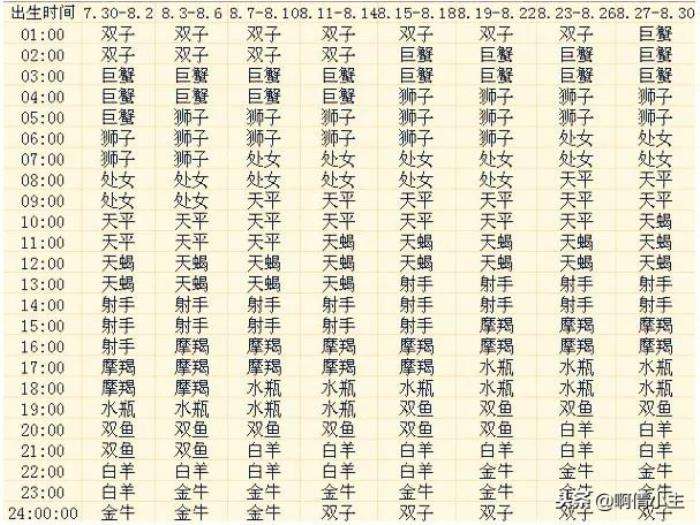 出生时间 7.30-8.2 8.3-8.6 8.7-8.10 8.11-8.14 8.15-8.18 8.19-8.22 8.23-8.26 8.27-8.30
01:00 双子 双子 双子 双子 双子 双子 双子 巨蟹
02:00 双子 双子 双子 双子 巨蟹 巨蟹 巨蟹 巨蟹
03:00 巨蟹 巨蟹 巨蟹 巨蟹 巨蟹 巨蟹 巨蟹 巨蟹
04:00 巨蟹 巨蟹 巨蟹 巨蟹 狮子 狮子 狮子 狮子
05:00 巨蟹 狮子 狮子 狮子 狮子 狮子 狮子 狮子
06:00 狮子 狮子 狮子 狮子 狮子 狮子 处女 处女
07:00 狮子 狮子 处女 处女 处女 处女 处女 处女
08:00 处女 处女 处女 处女 处女 处女 天平 天平
09:00 处女 处女 天平 天平 天平 天平 天平 天平
10:00 天平 天平 天平 天平 天平 天平 天平 天蝎
11:00 天平 天平 天平 天平 天蝎 天蝎 天蝎 天蝎
12:00 天蝎 天蝎 天蝎 天蝎 天蝎 天蝎 天蝎 天蝎
13:00 天蝎 天蝎 天蝎 天蝎 射手 射手 射手 射手
14:00 射手 射手 射手 射手 射手 射手 射手 射手
15:00 射手 射手 射手 射手 射手 摩羯 摩羯 摩羯
16:00 射手 摩羯 摩羯 摩羯 摩羯 摩羯 摩羯 摩羯
17:00 摩羯 摩羯 摩羯 摩羯 摩羯 水瓶 水瓶 水瓶
18:00 摩羯 摩羯 水瓶 水瓶 水瓶 水瓶 水瓶 水瓶
19:00 水瓶 水瓶 水瓶 水瓶 双鱼 双鱼 双鱼 双鱼
20:00 双鱼 双鱼 双鱼 双鱼 双鱼 双鱼 白羊 白羊
21:00 双鱼 双鱼 白羊 白羊 白羊 白羊 白羊 白羊
22:00 白羊 白羊 白羊 白羊 白羊 金牛 金牛 金牛
23:00 白羊 金牛 金牛 金牛 金牛 金牛
24:00:00 金牛 金牛 金牛 双子 双子 双子 双子 双子
头条 @啊倩小主